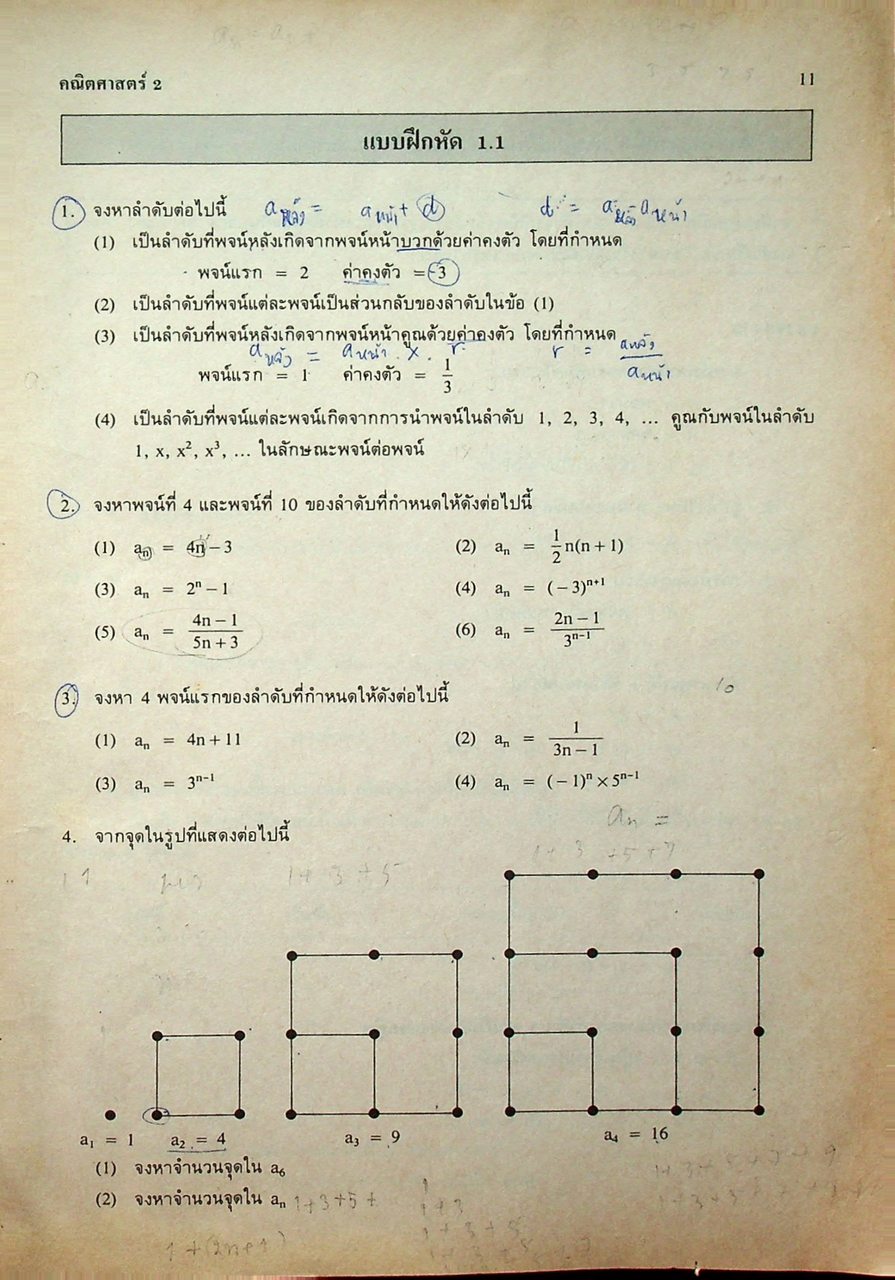 คณิตศาสตร์ 2
11
แบบฝึกหัด 1.1
1. จงหาลำดับต่อไปนี้ aหลัง = aหน้า + d d = aหลัง - aหน้า
(1) เป็นลำดับที่พจน์หลังเกิดจากพจน์หน้าบวกด้วยค่าคงตัว โดยที่กำหนด
พจน์แรก = 2 ค่าคงตัว = -3
(2) เป็นลำดับที่พจน์แต่ละพจน์เป็นส่วนกลับของลำดับในข้อ (1)
(3) เป็นลำดับที่พจน์หลังเกิดจากพจน์หน้าคูณด้วยค่าคงตัว โดยที่กำหนด
aหลัง = aหน้า x r r = aหลัง / aหน้า
พจน์แรก = 1 ค่าคงตัว = 1/3
(4) เป็นลำดับที่พจน์แต่ละพจน์เกิดจากการนำพจน์ในลำดับ 1, 2, 3, 4, ... คูณกับพจน์ในลำดับ
1, x, x², x³, ... ในลักษณะพจน์ต่อพจน์
2. จงหาพจน์ที่ 4 และพจน์ที่ 10 ของลำดับที่กำหนดให้ดังต่อไปนี้
(1) aₙ = 4n − 3 (2) aₙ = 1/2 n(n + 1)
(3) aₙ = 2ⁿ − 1 (4) aₙ = (−3)ⁿ⁺¹
(5) aₙ = (4n − 1)/(5n + 3) (6) aₙ = (2n − 1)/3ⁿ⁻¹
3. จงหา 4 พจน์แรกของลำดับที่กำหนดให้ดังต่อไปนี้
10
(1) aₙ = 4n + 11 (2) aₙ = 1/(3n − 1)
(3) aₙ = 3ⁿ⁻¹ (4) aₙ = (−1)ⁿ × 5ⁿ⁻¹
aₙ =
4. จากจุดในรูปที่แสดงต่อไปนี้
1+3+5 1+3+5+7
a₁ = 1 a₂ = 4 a₃ = 9 a₄ = 16
(1) จงหาจำนวนจุดใน a₆
(2) จงหาจำนวนจุดใน aₙ 1+3+5+
1
1+3
1+3+5